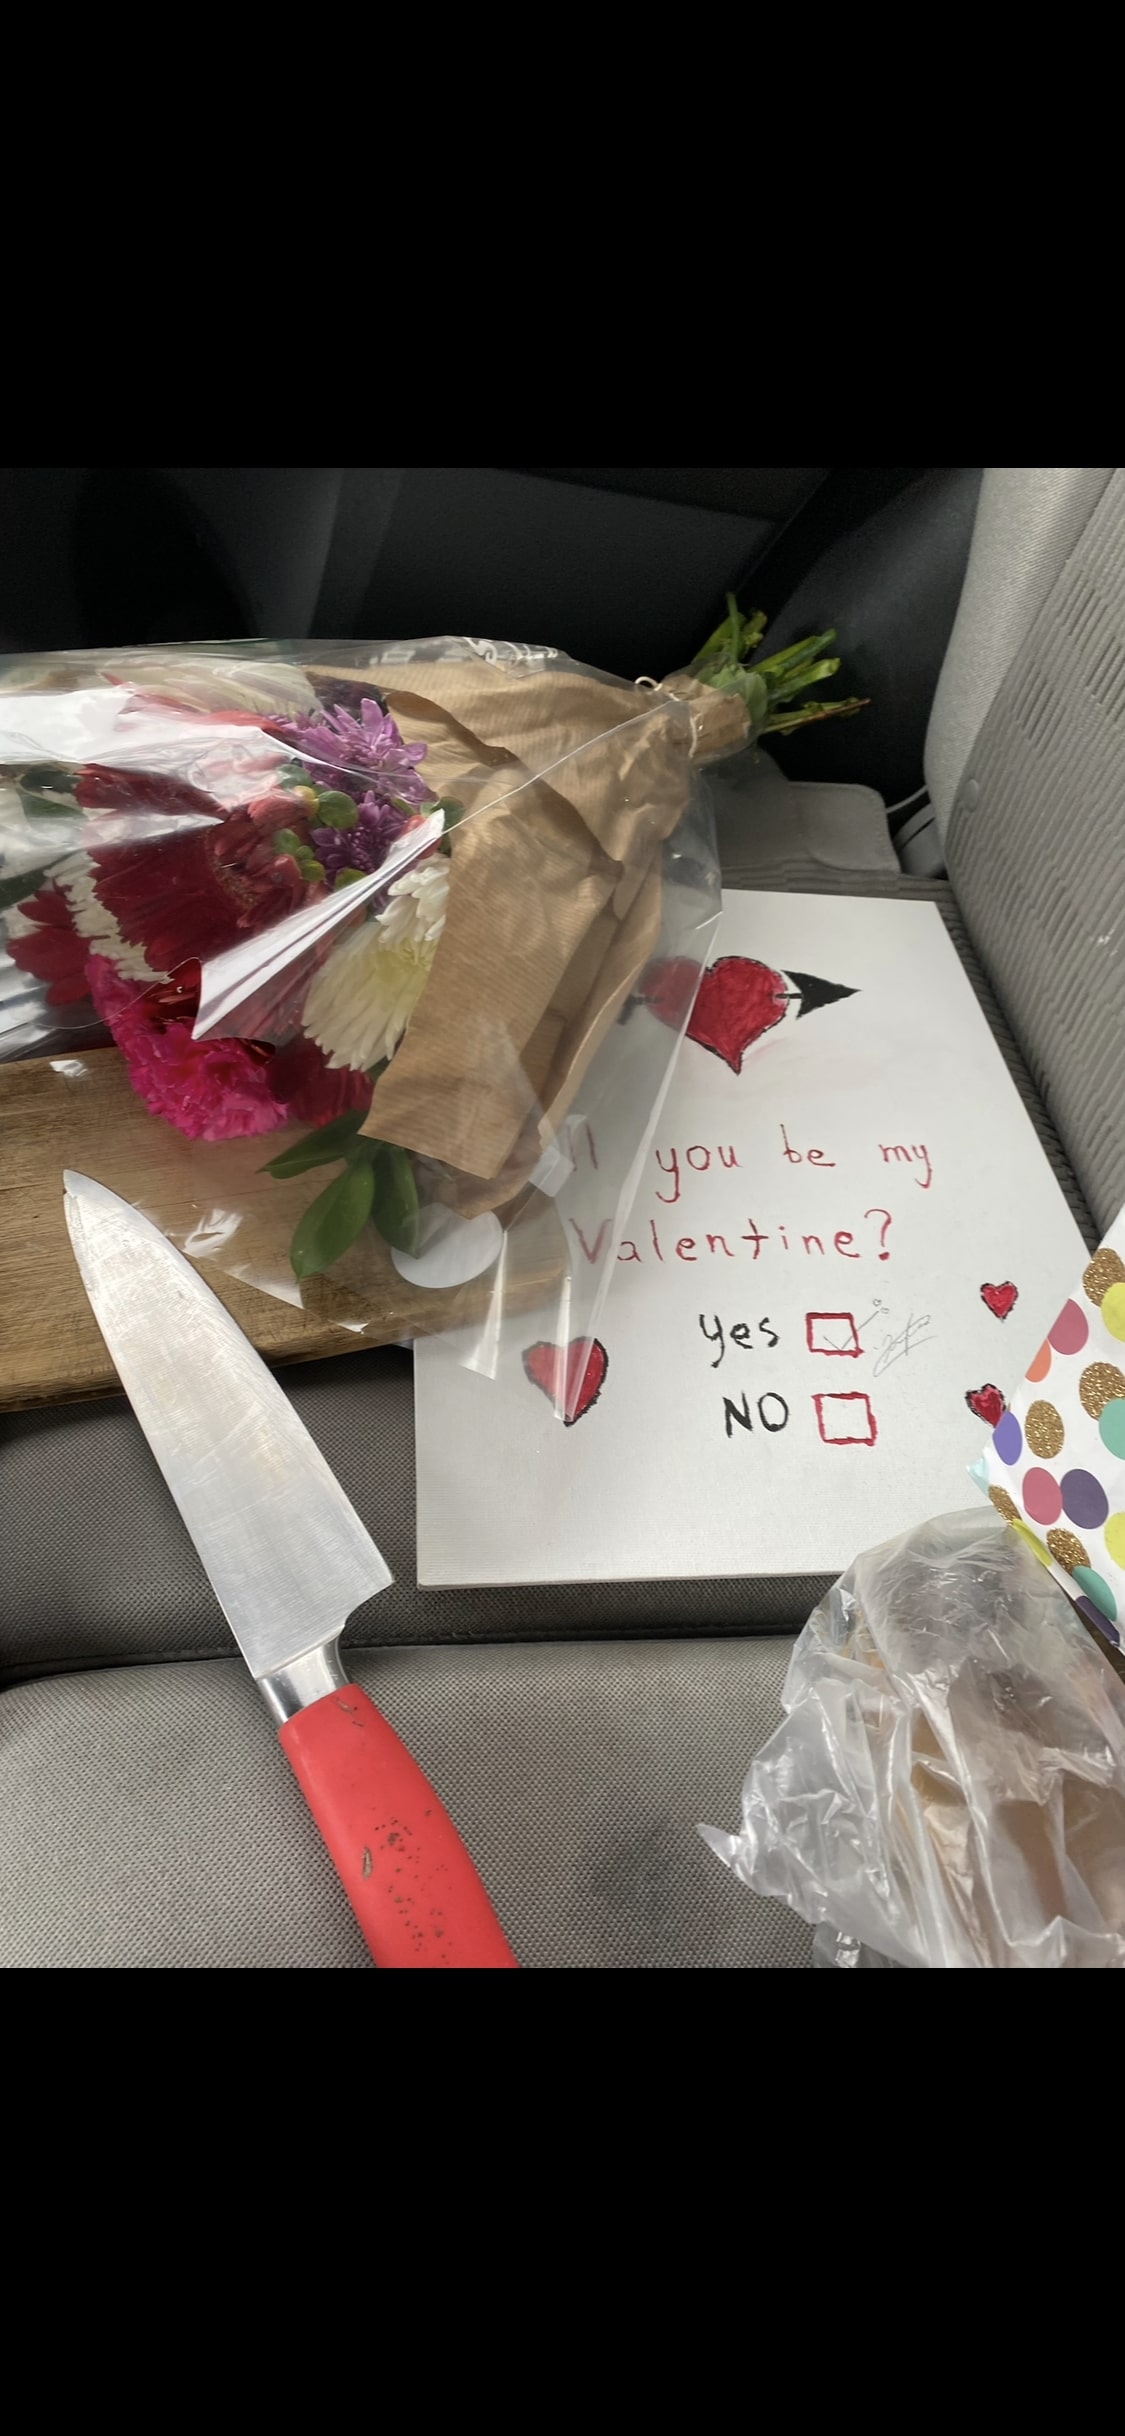 you be my
Valentine?
Yes
NO